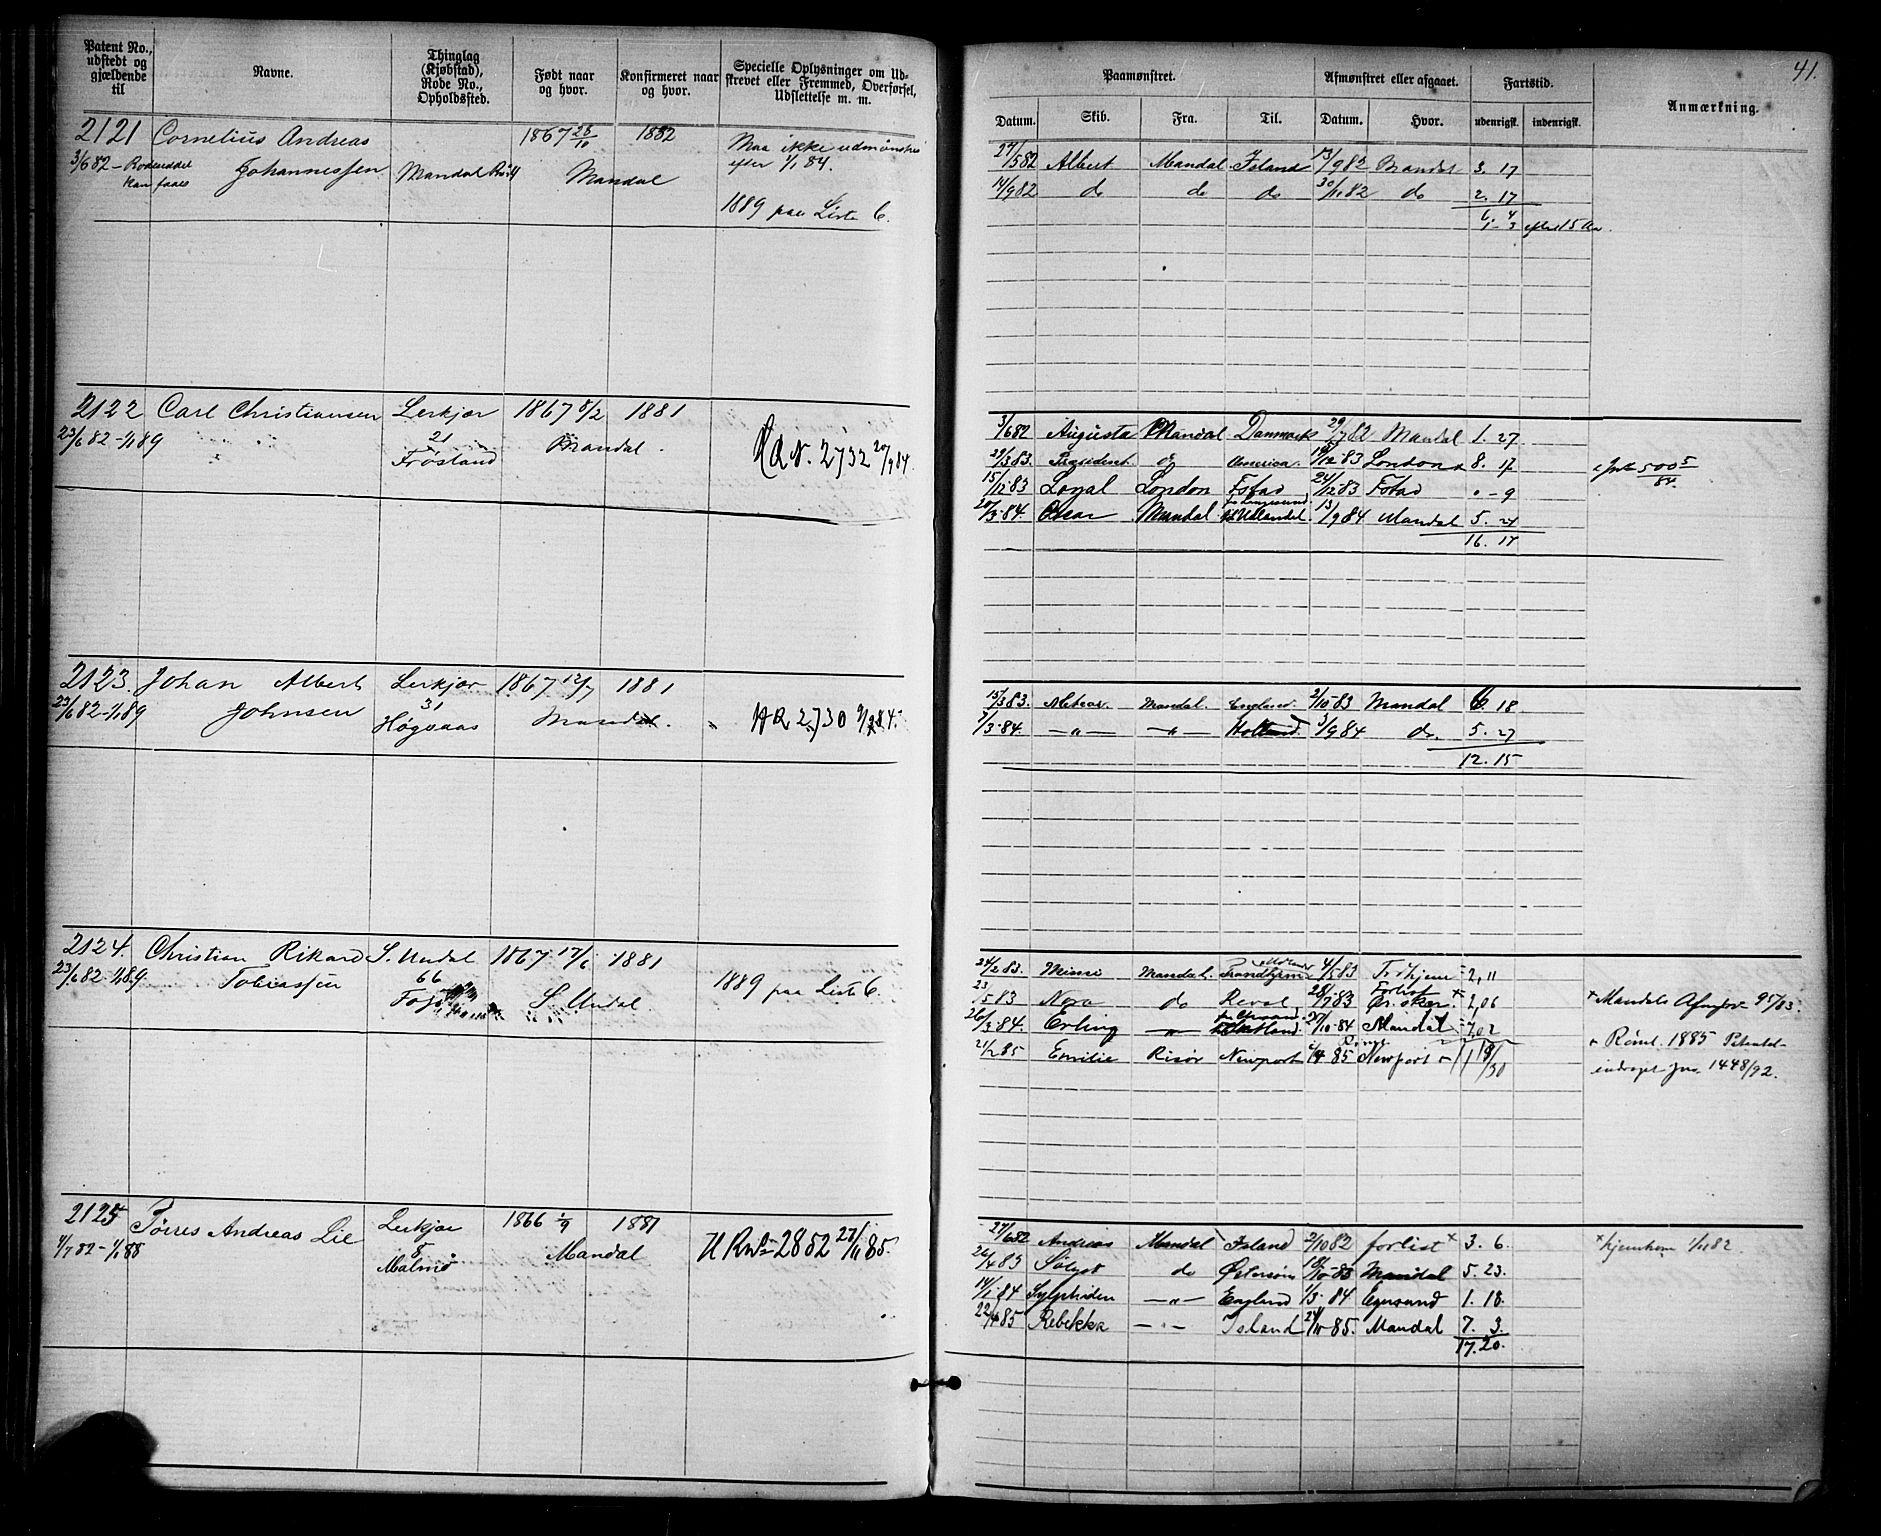 41.
Patent No., udstedt og gjældende til
Navne.
Thinglag (Kjøbstad), Rode No., Opholdssted.
Født naar og hvor.
Konfirmeret naar og hvor.
Specielle Oplysninger om Udstrevet eller Fremmed, Overførsel, Udslettelse m. m.
Paamønstret.
Datum.
Skib.
Fra.
Til.
Afmønstret eller afgaaet.
Datum.
Hvor.
Fartstid.
udenrigsk.
indenrigsk.
Anmærkning.
2121 Cornelius Andreas 1867 1882 Maa ikke udmønstres
3/6 82 Johannessen Mandal Mandal efter 1/1 84.
1889 paa Liste C.
27/5 82 Albert Mandal Island 13/9 82 Mandal 3. 17
14/9 82 do do do 30/11 82 do 2. 17
6. 4
2122 Carl Christiansen Lerkjær 1867 8/2 1881
23/6 82 - 1/1 89 21 Mandal HR N. 2732 20/9 84.
Frøsland
3/6 82 Augusta Mandal Danmark 29/7 82 Mandal 1. 27
29/3 83. Præsident do America 19/12 83 London 8. 17
15/12 83 Loyal London 24/12 83 9
20/3 84. Oscar Mandal 13/9 84 Mandal 5. 24
16. 17
2123. Johan Albert Lerkjær 1867 12/7 1881
23/6 82 - 1/1 89 Johnsen 31 Mandal. HR 2730
Høgaas
15/3 83. Mandal. England 2/10 83 Mandal 6. 18
7/3 84. — " — — " — Holland. 3/9 84 do. 5. 27
12. 15
2124. Christian Rikard S. Undal 1867 17/6 1881
23/6 82 - 1/1 89. Tobiassen 66 S. Undal 1889 paa Liste C.
24/2 83. Mandal. Trondhjem 4/5 83 2, 11
23/5 83 Nora do Reval 28/7 83 Forlist 2, 06
26/3 84. Erling — " — 27/10 84 Mandal 7, 02
21/2 85 Emilie Risør Newport 85 Newport
+ Mandals 95/83.
+ 1885
1448/92.
2125 Tørres Andreas Lie Lerkjær 1866 1/9 1881
4/7 82 - 1/1 88 5 Mandal H R No 2852 27/11 85.
Malmø
27/6 82 Andreas Mandal Island 2/10 82 forlist + 3. 6.
26/4 83 do Østersøen 18/10 83 Mandal 5. 23.
14/1 84 Sylphiden — " — England 1/3 84 Egersund 1. 18.
22/4 85 Rebekka — " — Island 24/11 85. Mandal 7. 3.
17. 20.
+ hjemkom 1/11 82